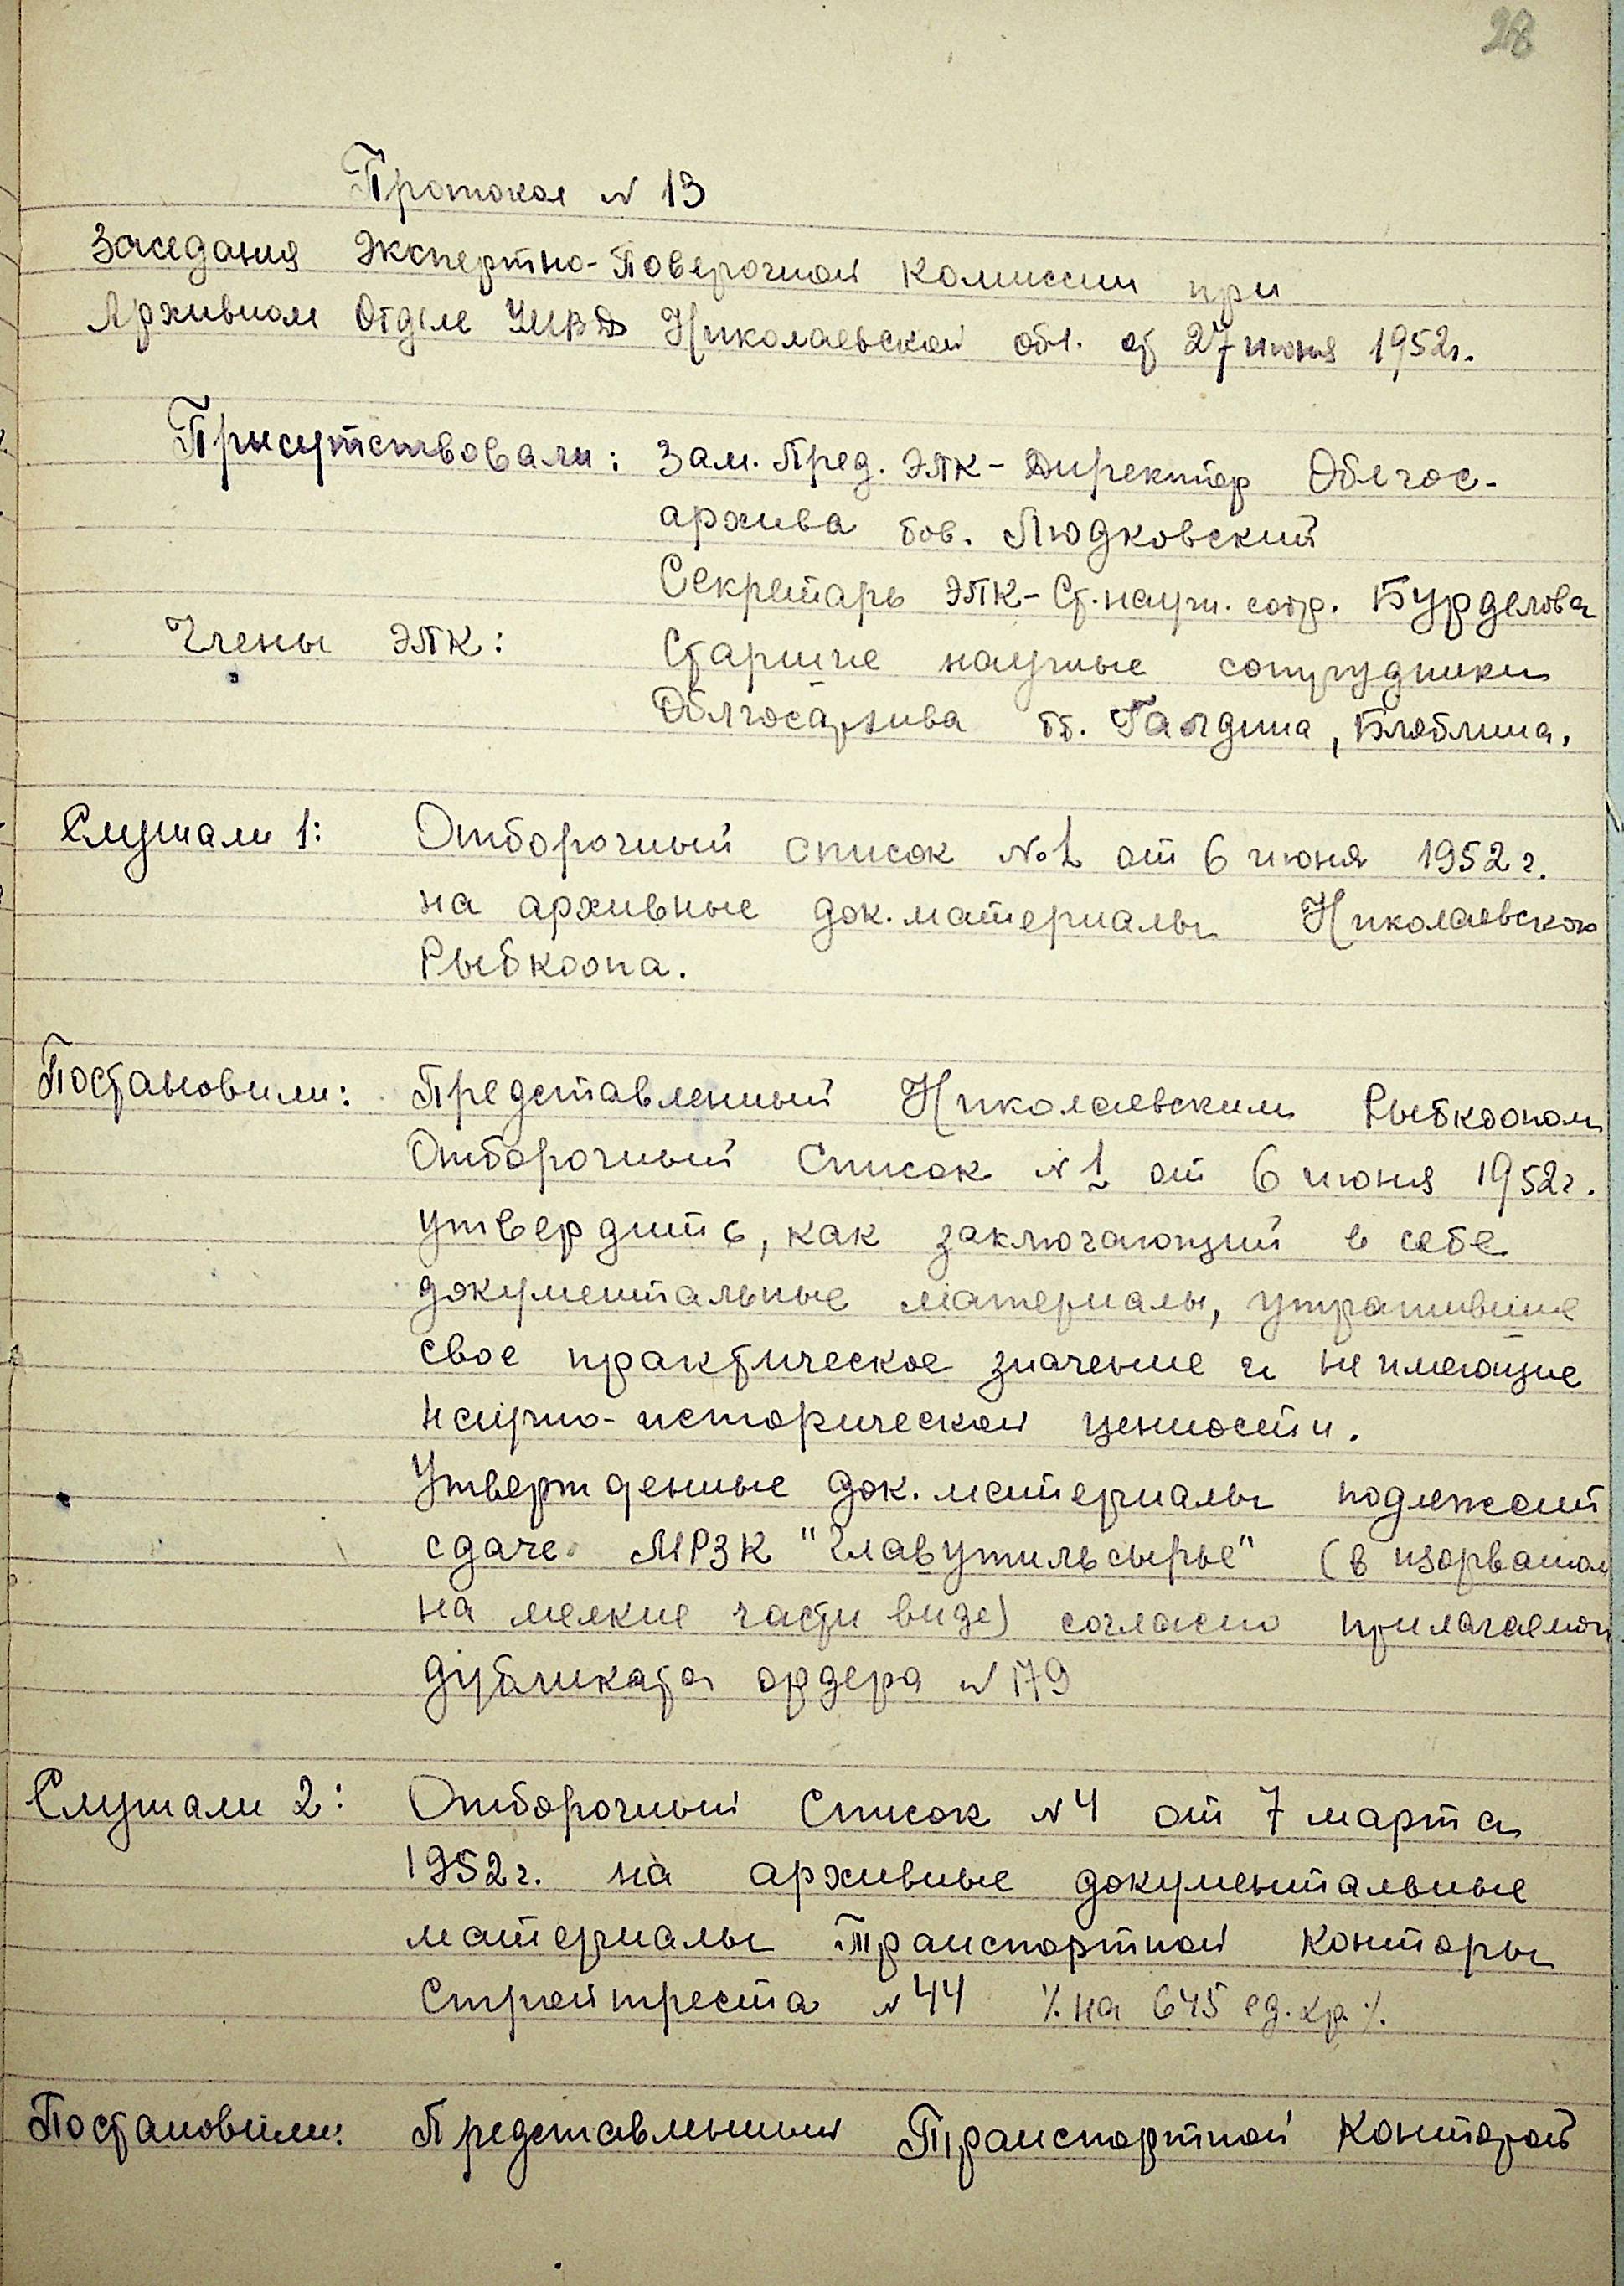 28
Протокол N 13
Заседания Экспертно-Поверочной Комиссии при
Архивном Отделе УМВД Николаевской обл. от 27 июня 1952г.
Присутствовали: Зам. Пред. ЭПК - Директор Облгос-
архива тов. Людковский
Секретарь ЭПК - Ст. научн. сотр. Бурделова
Члены ЭПК: Старшие научные сотрудники
Облгосархива тт. Галдина, Бляблина.
Слушали 1: Отборочный список №1 от 6 июня 1952 г.
на архивные док. материалы Николаевского
Рыбкоопа.
Постановили: Представленный Николаевским Рыбкоопом
Отборочный Список N 1 от 6 июня 1952г.
утвердить, как заключающий в себе
документальные материалы, утратившие
свое практическое значение и не имеющие
научно-исторической ценности.
Утвержденные док. материалы подлежат
сдаче МРЗК "Главутильсырье" (в изорваном
на мелкие части виде) согласно прилагаемой
дубликата ордера N 179
Слушали 2: Отборочный Список N 4 от 7 марта
1952г. на архивные документальные
материалы Транспортной конторы
Стройтреста N 44 /. на 645 ед. хр. /.
Постановили: Представленный Транспортной Конторой